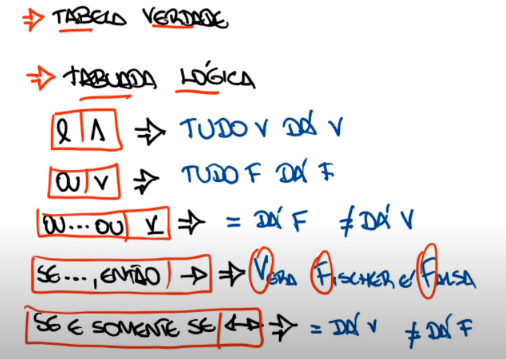 ⇒ TABELA VERDADE
⇒ TABUADA LÓGICA
e | ∧ ⇒ TUDO V DÁ V
OU | ∨ ⇒ TUDO F DÁ F
OU...OU | ⊻ ⇒ = DÁ F ≠ DÁ V
SE..., ENTÃO | → ⇒ VERA FISCHER É FALSA
SE E SOMENTE SE | ↔ ⇒ = DÁ V ≠ DÁ F